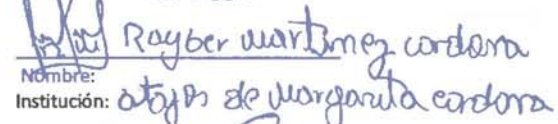 Rayber martinez cordona
Nombre:
Institución: de margarita cardona